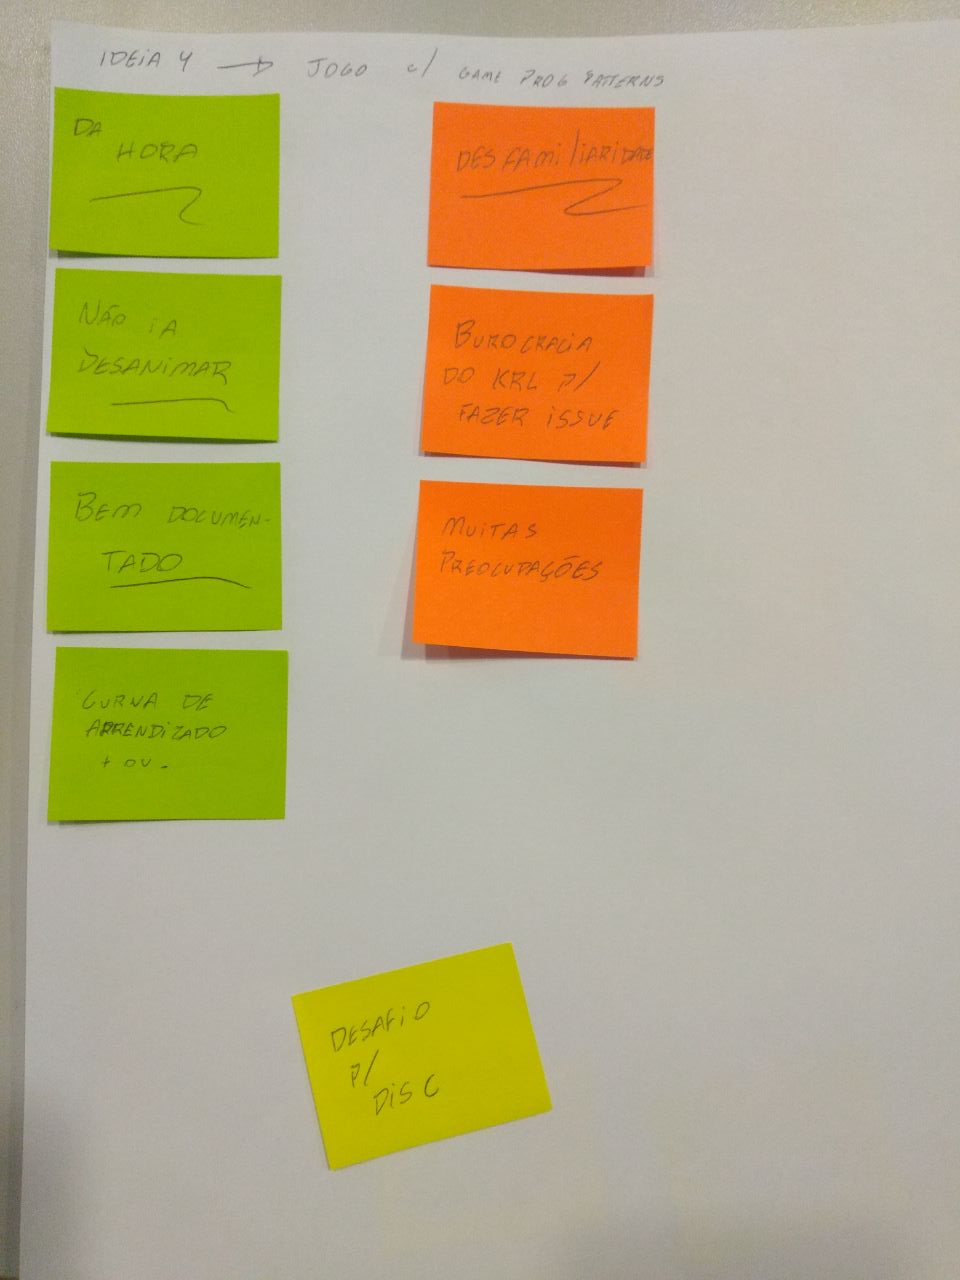 IDEIA 4 → JOGO c/ GAME PROG PATTERNS
DA
HORA
NÃO IA
DESANIMAR
BEM DOCUMEN-
TADO
CURVA DE
APRENDIZADO
+ OU -
DESFAMILIARIDADE
BUROCRACIA
DO KRL P/
FAZER ISSUE
MUITAS
PREOCUPAÇÕES
DESAFIO
P/
DISC